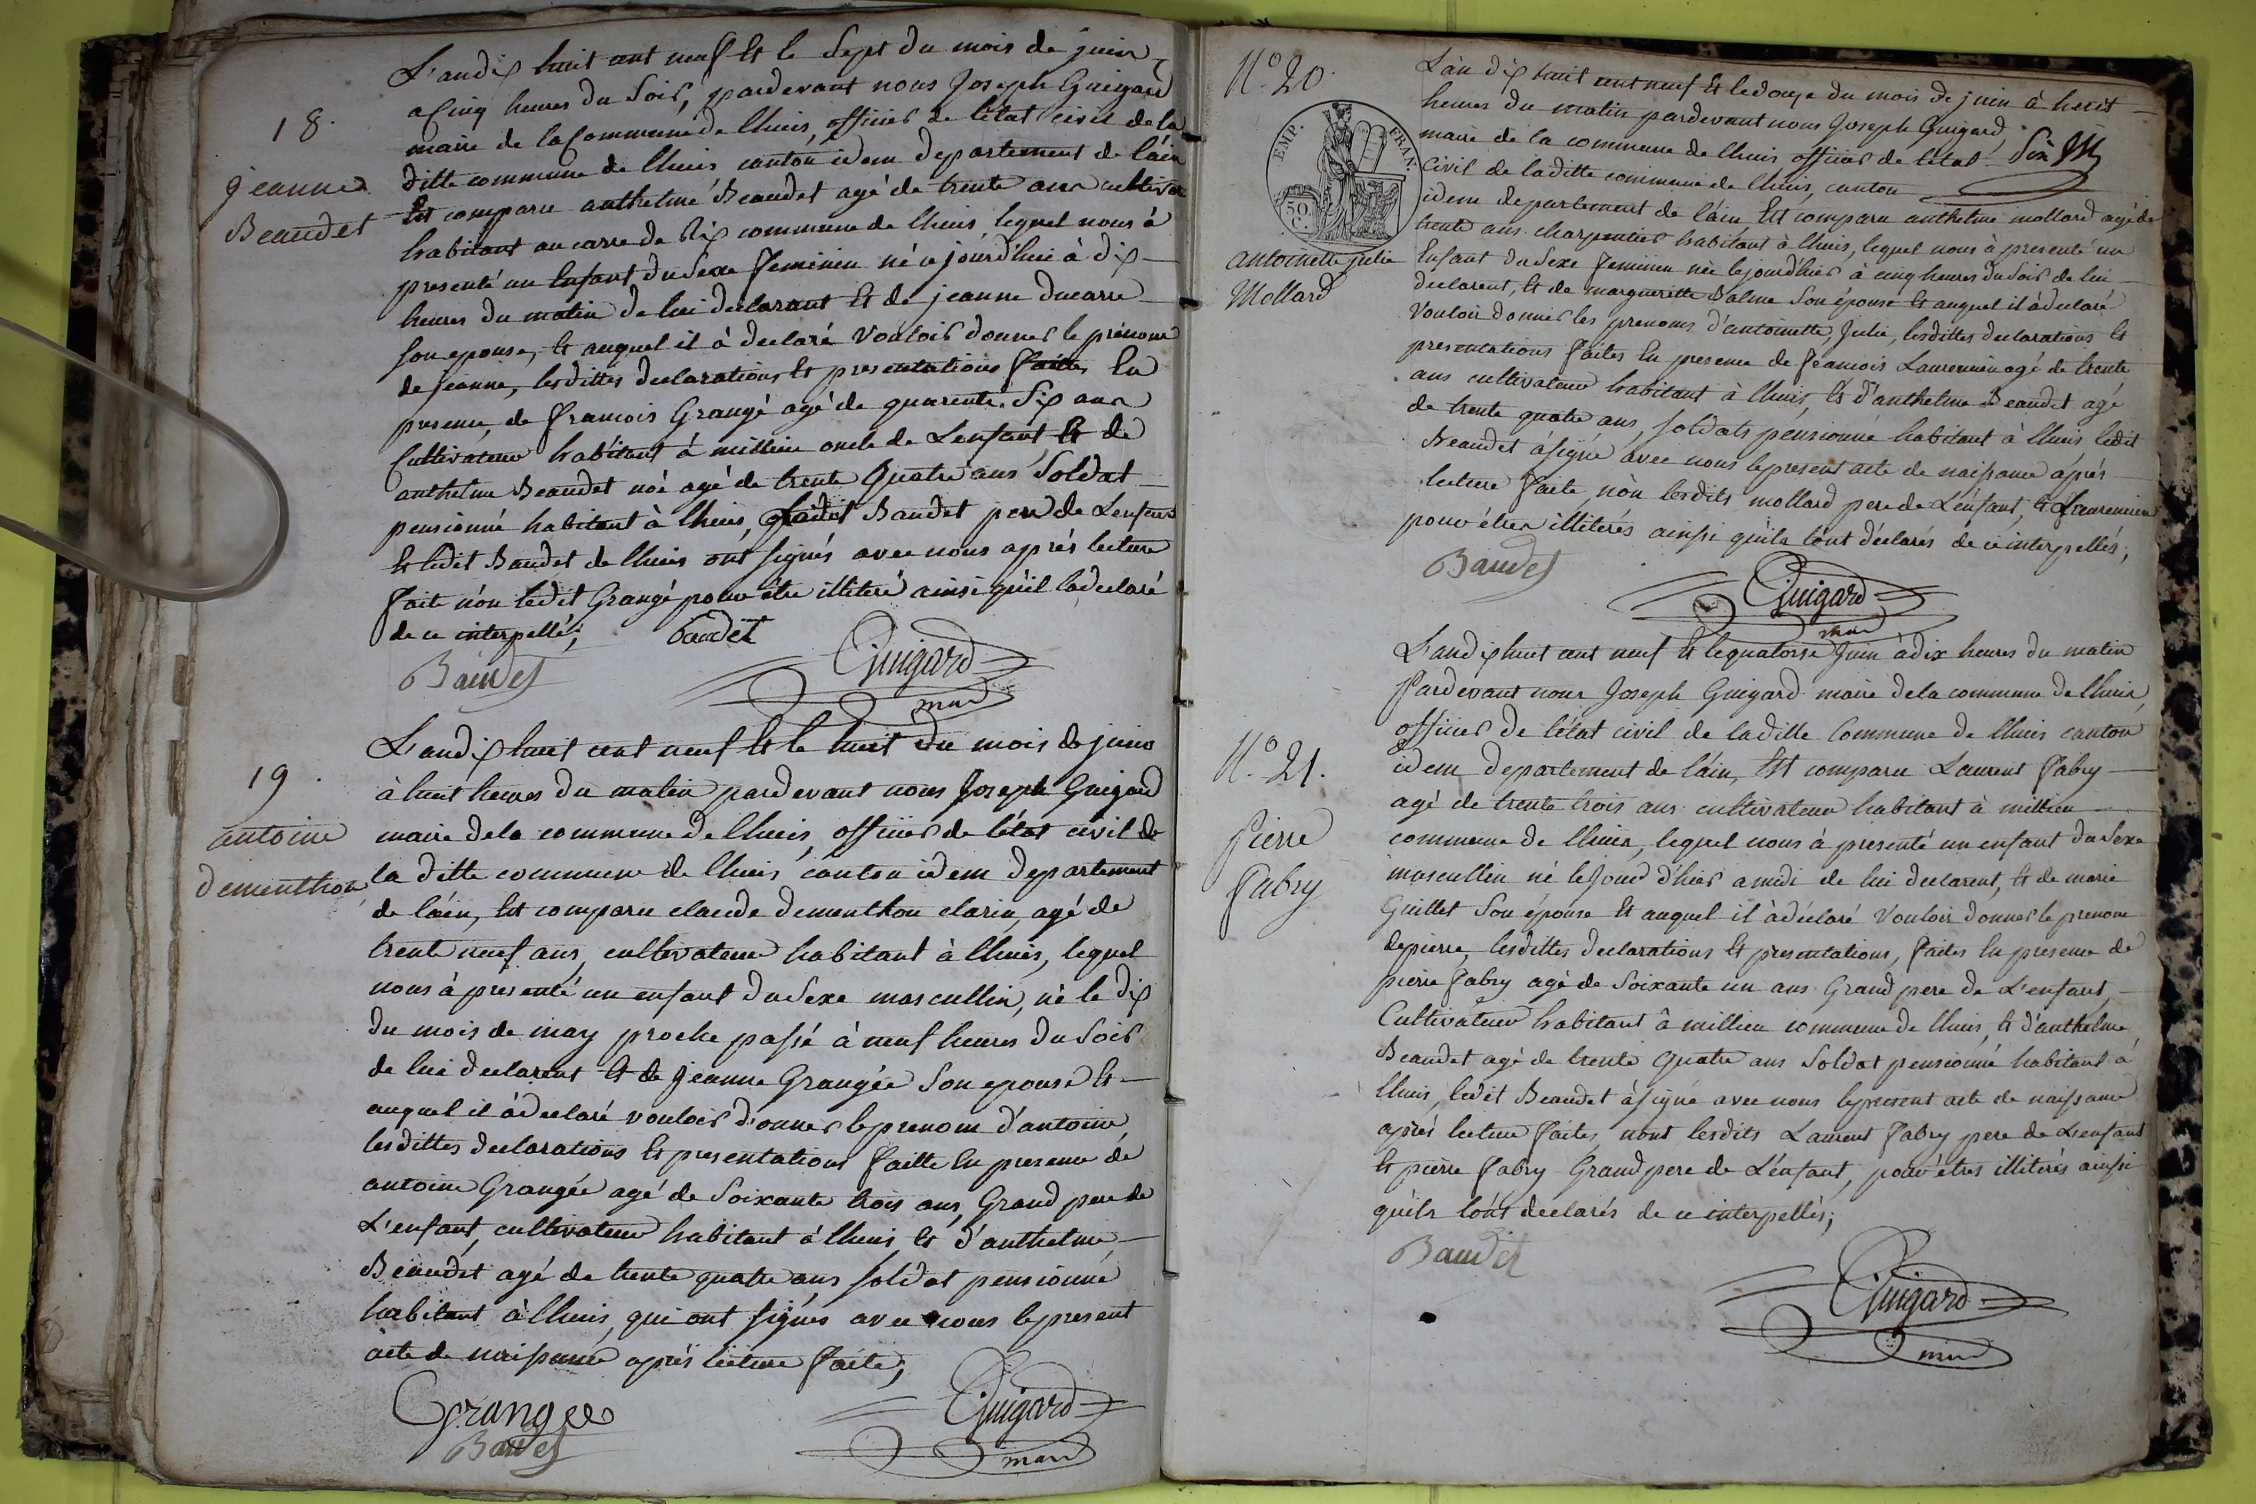 18.
jeanne
Beaudet
L'an dix huit cent neuf Et le Sept du mois de juin
a Cinq heures du Soir, pardevant nous Joseph Guigard
maire de la Commune de lhuis, officier de l'état civil de la
ditte commune de lhuis canton idem departement de l'áin
Est comparu anthelme Beaudet agé de trente ans
habitant au carre de Rix commune de lhuis, lequel nous à
presenté un Enfant du Sexe feminien né ce jourd'hui à dix
heures du matin de lui declarant Et de jeanne ducarre
Son epouse, Et auquel il à declaré Vouloir donner le prénome
de jeanne, lesdittes declarations Et presentations faites En
presence, de francois Grangé agé de quarente Six ans
Cultivateur habitant à millieu oncle de L'enfant Et de
anthelme Beaudet agé de trente Quatre ans Soldat
pensionné habitant à lhuis, Baudet pere de L'enfant
Et ledit Baudet de lhuis ont signés avec nous aprés lecture
faite nön ledit Grangé pour être illiteré ainsi qu'il la declaré
de ce interpellé; Baudet
Baudet Guigard
maire
19.
antoine
dementhon
L'an dix huit cent neuf Et le huit du mois de juin
à huit heures du matin pardevant nous Joseph Guigard
maire de la commune de lhuis, officier de l'état civil de
la ditte commune de lhuis canton idem departement
de l'áin, Est comparu claude dementhon clarin, agé de
trente neuf ans, cultivateur habitant à lhuis, lequel
nous à presenté un enfant du Sexe mascullin, né le dix
du mois de may proche passé à neuf heures du Soir
de lui declarent Et de jeanne Grangée Son epouse Et
auquel il à declaré vouloir donner le prenom d'antoine
lesdittes declarations Et presentations faitte En presence de
antoine Grangée agé de Soixante trois ans, Grand pere de
L'enfant, cultivateur habitant à lhuis, Et d'anthelme
Beaudet agé de trente quatre ans soldat pensionné
habitant à lhuis, qui ont signés avec nous le present
acte de naissance aprés lecture faite;
Grangée
Baudet Guigard
maire
N.º 20.
EMP. FRAN.
50. C.
antoinette julie
Mollard
L'an dix huit cent neuf Et le douze du mois de juin à huit
heures du matin pardevant nous Joseph Guigard,
maire de la commune de lhuis officier de l'état
Civil de laditte commune de lhuis, canton
idem departement de l'áin Est comparu anthelme mollard agé de
trente ans charpentier habitant à lhuis, lequel nous à presenté un
Enfant du Sexe feminien née le jourd'hier à cinq heures du Soir de lui
declarent, Et de marguerite Balme Son épouse Et auquel il à declaré
Vouloir donner les prenoms d'antoinette, Julie, lesdittes declarations Et
presentations faites En presence de francois Laurencin agé de trente
ans cultivateur habitant à lhuis, Et d'anthelme Beaudet agé
de trente quatre ans, soldats pensionné habitant à lhuis ledit
Beaudet à signé avec nous le present acte de naissance aprés
lecture faite, nön lesdits mollard pere de L'enfant, Et Laurencin
pour étres illiterés ainsi quils l'ont déclarés de ce interpellés;
Baudet
Guigard
maire
N.º 21.
Pierre
Fabry
L'an dix huit cent neuf Et le quatorze Juin à dix heures du matin
Pardevant nous Joseph Guigard maire de la commune de lhuis,
officier de l'état civil de laditte Commune de lhuis canton
idem departement de l'áin, Est comparu Laurent Fabry
agé de trente trois ans cultivateur habitant à millieu
commune de lhuis, lequel nous à presenté un enfant du Sexe
mascullin né le jour d'hier a midi de lui declarent, Et de marie
Guillet Son épouse Et auquel il à declaré Vouloir donner le prenome
de pierre, lesdittes declarations Et presentations, faites En presence de
pierre fabry agé de Soixante un ans Grand pere de L'enfant,
Cultivateur habitant à millieu commune de lhuis, Et d'anthelme
Beaudet agé de trente Quatre ans Soldat pensionné habitant à
lhuis, ledit Beaudet à signé avec nous le present acte de naissance
aprés lecture faites, nont lesdits Laurent fabry pere de L'enfant
Et pierre fabry Grand pere de L'enfant, pour étres illiterés ainsi
quils l'ont declarés de ce interpellés;
Baudet
Guigard
maire